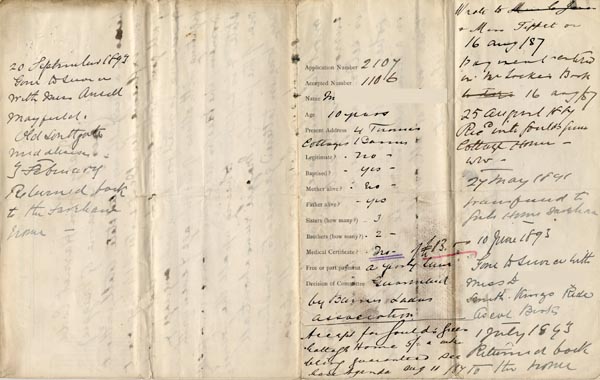 20 September 1893
Gone to Service
with Miss Ansell
Mayfield.
Old Southgate
Middlesex.
9 February
Returned back
to the
Home —
Application Number 2107
Accepted Number 1106
Name M
Age 10 years
Present Address 4 Thames
Cottages Barnes
Legitimate? - No -
Baptised? - Yes -
Mother alive? - No -
Father alive? - Yes
Sisters (how many?) - 3
Brothers (how many?) - 2 -
Medical Certificate? - No - £13.
Free or part payment
Decision of Committee
by Barnes Ladies
association
Accept for Goulds Green
Cottage Home 5/- a week
being guaranteed see
Case Agenda Aug 11
Wrote to
& Miss Tippet on
16 Aug /87
Payment entered
in Book
16 Aug /87
25 August 1887
Recd into Goulds Green
Cottage Home —
27 May 1891
transferred to
Girls Home
10 June 1893
Gone to Service with
Miss D
Kings Ride
Ascot Berks
1 July 1893
Returned back
to the Home